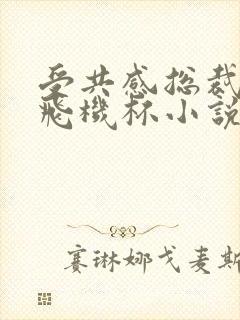 受共感总裁
飛機杯小說
赛琳娜戈麦斯